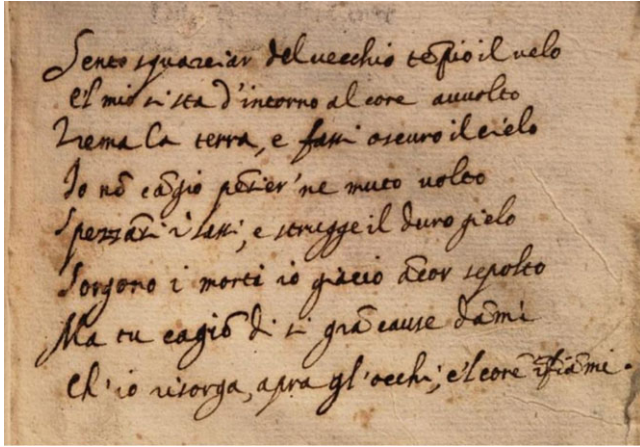 Sento squarciar del vecchio tẽpio il velo
E'l mio si sta d'intorno al core auuolto
Trema la terra, e fassi oscuro il cielo
Io nõ cãgio pẽsier' ne muto uolto
Spezzãsi i sassi, e strugge il duro gielo
Sorgono i morti io giacio ãcor sepolto
Ma tu cagiõ di si grã cause dãmi
Ch'io risorga, apra gl'occhi, e'l core ĩfiãmi.